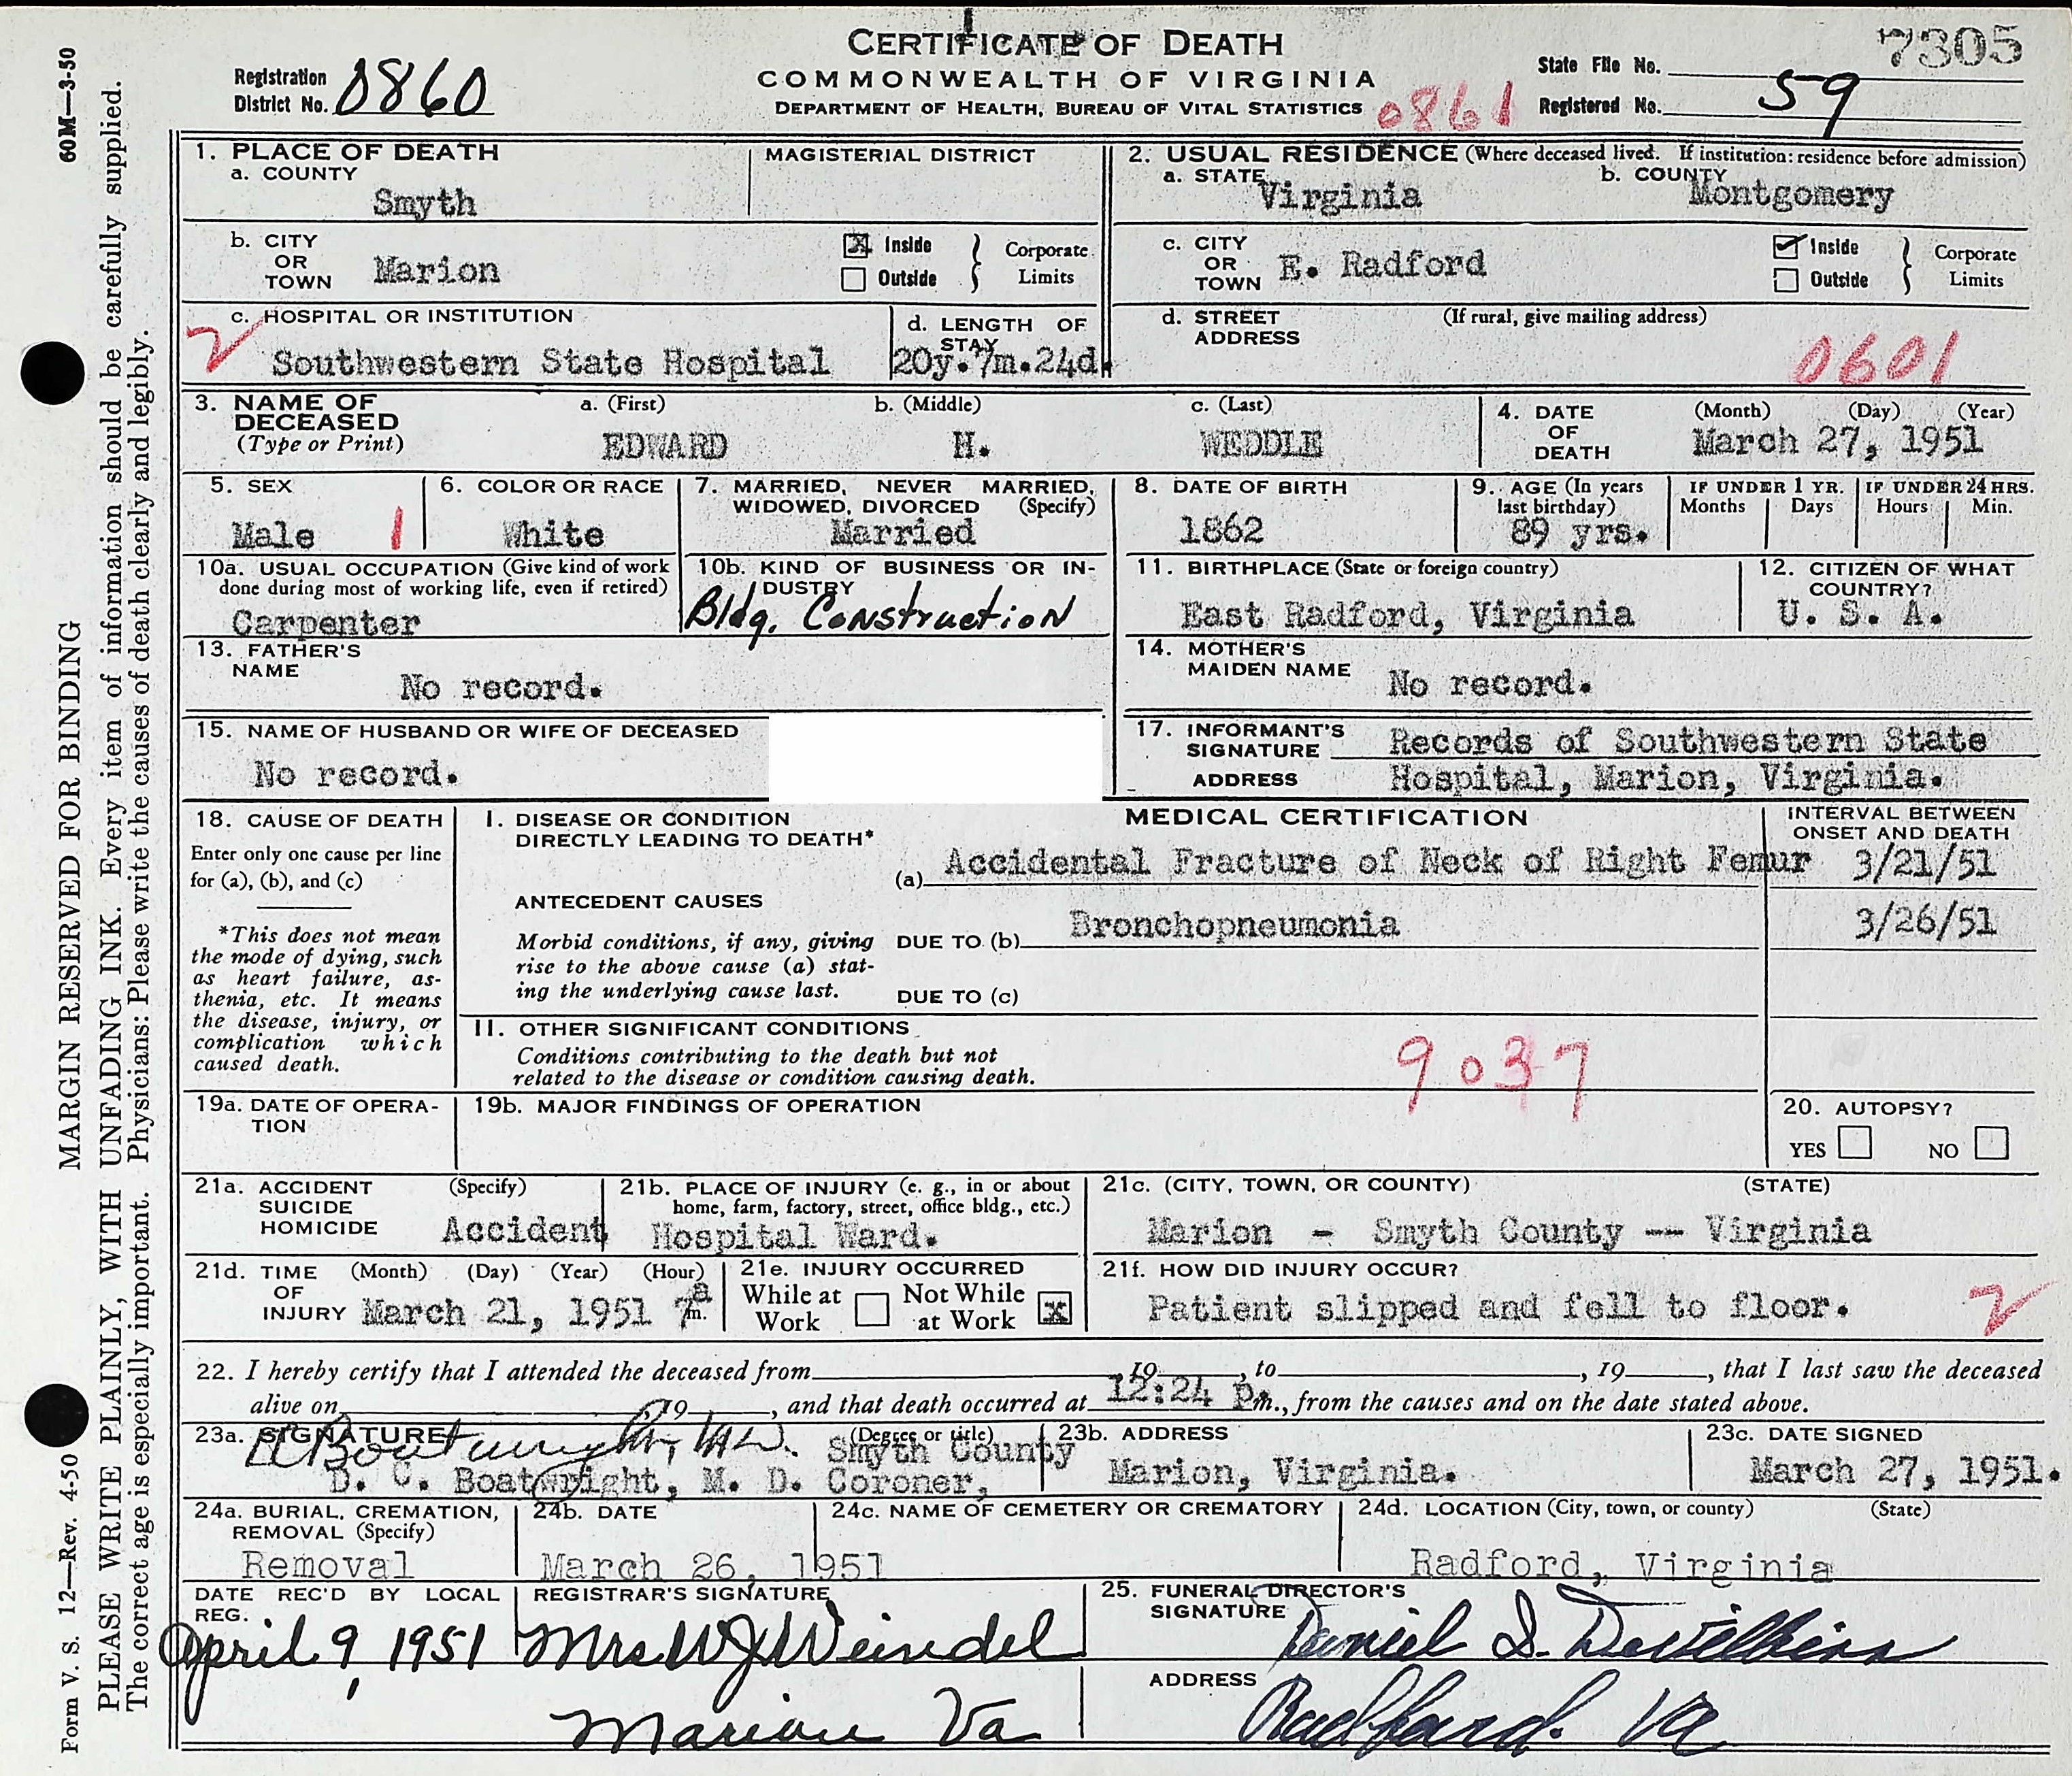 CERTIFICATE OF DEATH
COMMONWEALTH OF VIRGINIA
DEPARTMENT OF HEALTH, BUREAU OF VITAL STATISTICS 0861
Registration District No. 0860
7305
State File No.
Registered No. 59
60M—3-50
MARGIN RESERVED FOR BINDING
PLEASE WRITE PLAINLY, WITH UNFADING INK. Every item of information should be carefully supplied.
The correct age is especially important. Physicians: Please write the causes of death clearly and legibly.
Form V. S. 12—Rev. 4-50
1. PLACE OF DEATH
a. COUNTY
Smyth
MAGISTERIAL DISTRICT
2. USUAL RESIDENCE (Where deceased lived. If institution: residence before admission)
a. STATE Virginia
b. COUNTY Montgomery
b. CITY OR TOWN Marion
X Inside
Outside
Corporate Limits
c. CITY OR TOWN E. Radford
✓ Inside
Outside
Corporate Limits
c. HOSPITAL OR INSTITUTION
2
Southwestern State Hospital
d. LENGTH OF STAY
20y.7m.24d.
d. STREET ADDRESS
(If rural, give mailing address)
0601
3. NAME OF DECEASED
(Type or Print)
a. (First) b. (Middle) c. (Last)
EDWARD H. WEDDLE
4. DATE OF DEATH
(Month) (Day) (Year)
March 27, 1951
5. SEX
Male 1
6. COLOR OR RACE
White
7. MARRIED, NEVER MARRIED, WIDOWED, DIVORCED (Specify)
Married
8. DATE OF BIRTH
1862
9. AGE (In years last birthday)
89 yrs.
IF UNDER 1 YR.
Months Days
IF UNDER 24 HRS.
Hours Min.
10a. USUAL OCCUPATION (Give kind of work done during most of working life, even if retired)
Carpenter
10b. KIND OF BUSINESS OR INDUSTRY
Bldg. Construction
11. BIRTHPLACE (State or foreign country)
East Radford, Virginia
12. CITIZEN OF WHAT COUNTRY?
U. S. A.
13. FATHER'S NAME
No record.
14. MOTHER'S MAIDEN NAME
No record.
15. NAME OF HUSBAND OR WIFE OF DECEASED
No record.
17. INFORMANT'S SIGNATURE Records of Southwestern State
ADDRESS Hospital, Marion, Virginia.
18. CAUSE OF DEATH
Enter only one cause per line for (a), (b), and (c)
*This does not mean the mode of dying, such as heart failure, asthenia, etc. It means the disease, injury, or complication which caused death.
MEDICAL CERTIFICATION
INTERVAL BETWEEN ONSET AND DEATH
I. DISEASE OR CONDITION DIRECTLY LEADING TO DEATH*
(a) Accidental Fracture of Neck of Right Femur 3/21/51
ANTECEDENT CAUSES
Morbid conditions, if any, giving rise to the above cause (a) stating the underlying cause last.
DUE TO (b) Bronchopneumonia 3/26/51
DUE TO (c)
II. OTHER SIGNIFICANT CONDITIONS
Conditions contributing to the death but not related to the disease or condition causing death.
9037
19a. DATE OF OPERATION
19b. MAJOR FINDINGS OF OPERATION
20. AUTOPSY?
YES NO
21a. ACCIDENT SUICIDE HOMICIDE
(Specify)
Accident
21b. PLACE OF INJURY (e. g., in or about home, farm, factory, street, office bldg., etc.)
Hospital Ward.
21c. (CITY, TOWN, OR COUNTY) (STATE)
Marion - Smyth County -- Virginia
21d. TIME OF INJURY
(Month) (Day) (Year) (Hour)
March 21, 1951 7 a m.
21e. INJURY OCCURRED
While at Work
Not While at Work X
21f. HOW DID INJURY OCCUR?
Patient slipped and fell to floor. 2
22. I hereby certify that I attended the deceased from , 19 , to , 19 , that I last saw the deceased
alive on , 19 , and that death occurred at 12:24 p.m., from the causes and on the date stated above.
23a. SIGNATURE (Degree or title)
DC Boatwright, M.D. Smyth County
D. C. Boatwright, M. D. Coroner,
23b. ADDRESS
Marion, Virginia.
23c. DATE SIGNED
March 27, 1951.
24a. BURIAL, CREMATION, REMOVAL (Specify)
Removal
24b. DATE
March 26, 1951
24c. NAME OF CEMETERY OR CREMATORY
24d. LOCATION (City, town, or county) (State)
Radford, Virginia
DATE REC'D BY LOCAL REG.
April 9, 1951
REGISTRAR'S SIGNATURE
Mrs W J Weindel
Marion Va
25. FUNERAL DIRECTOR'S SIGNATURE
Daniel D. Devilbiss
ADDRESS
Radford. Va